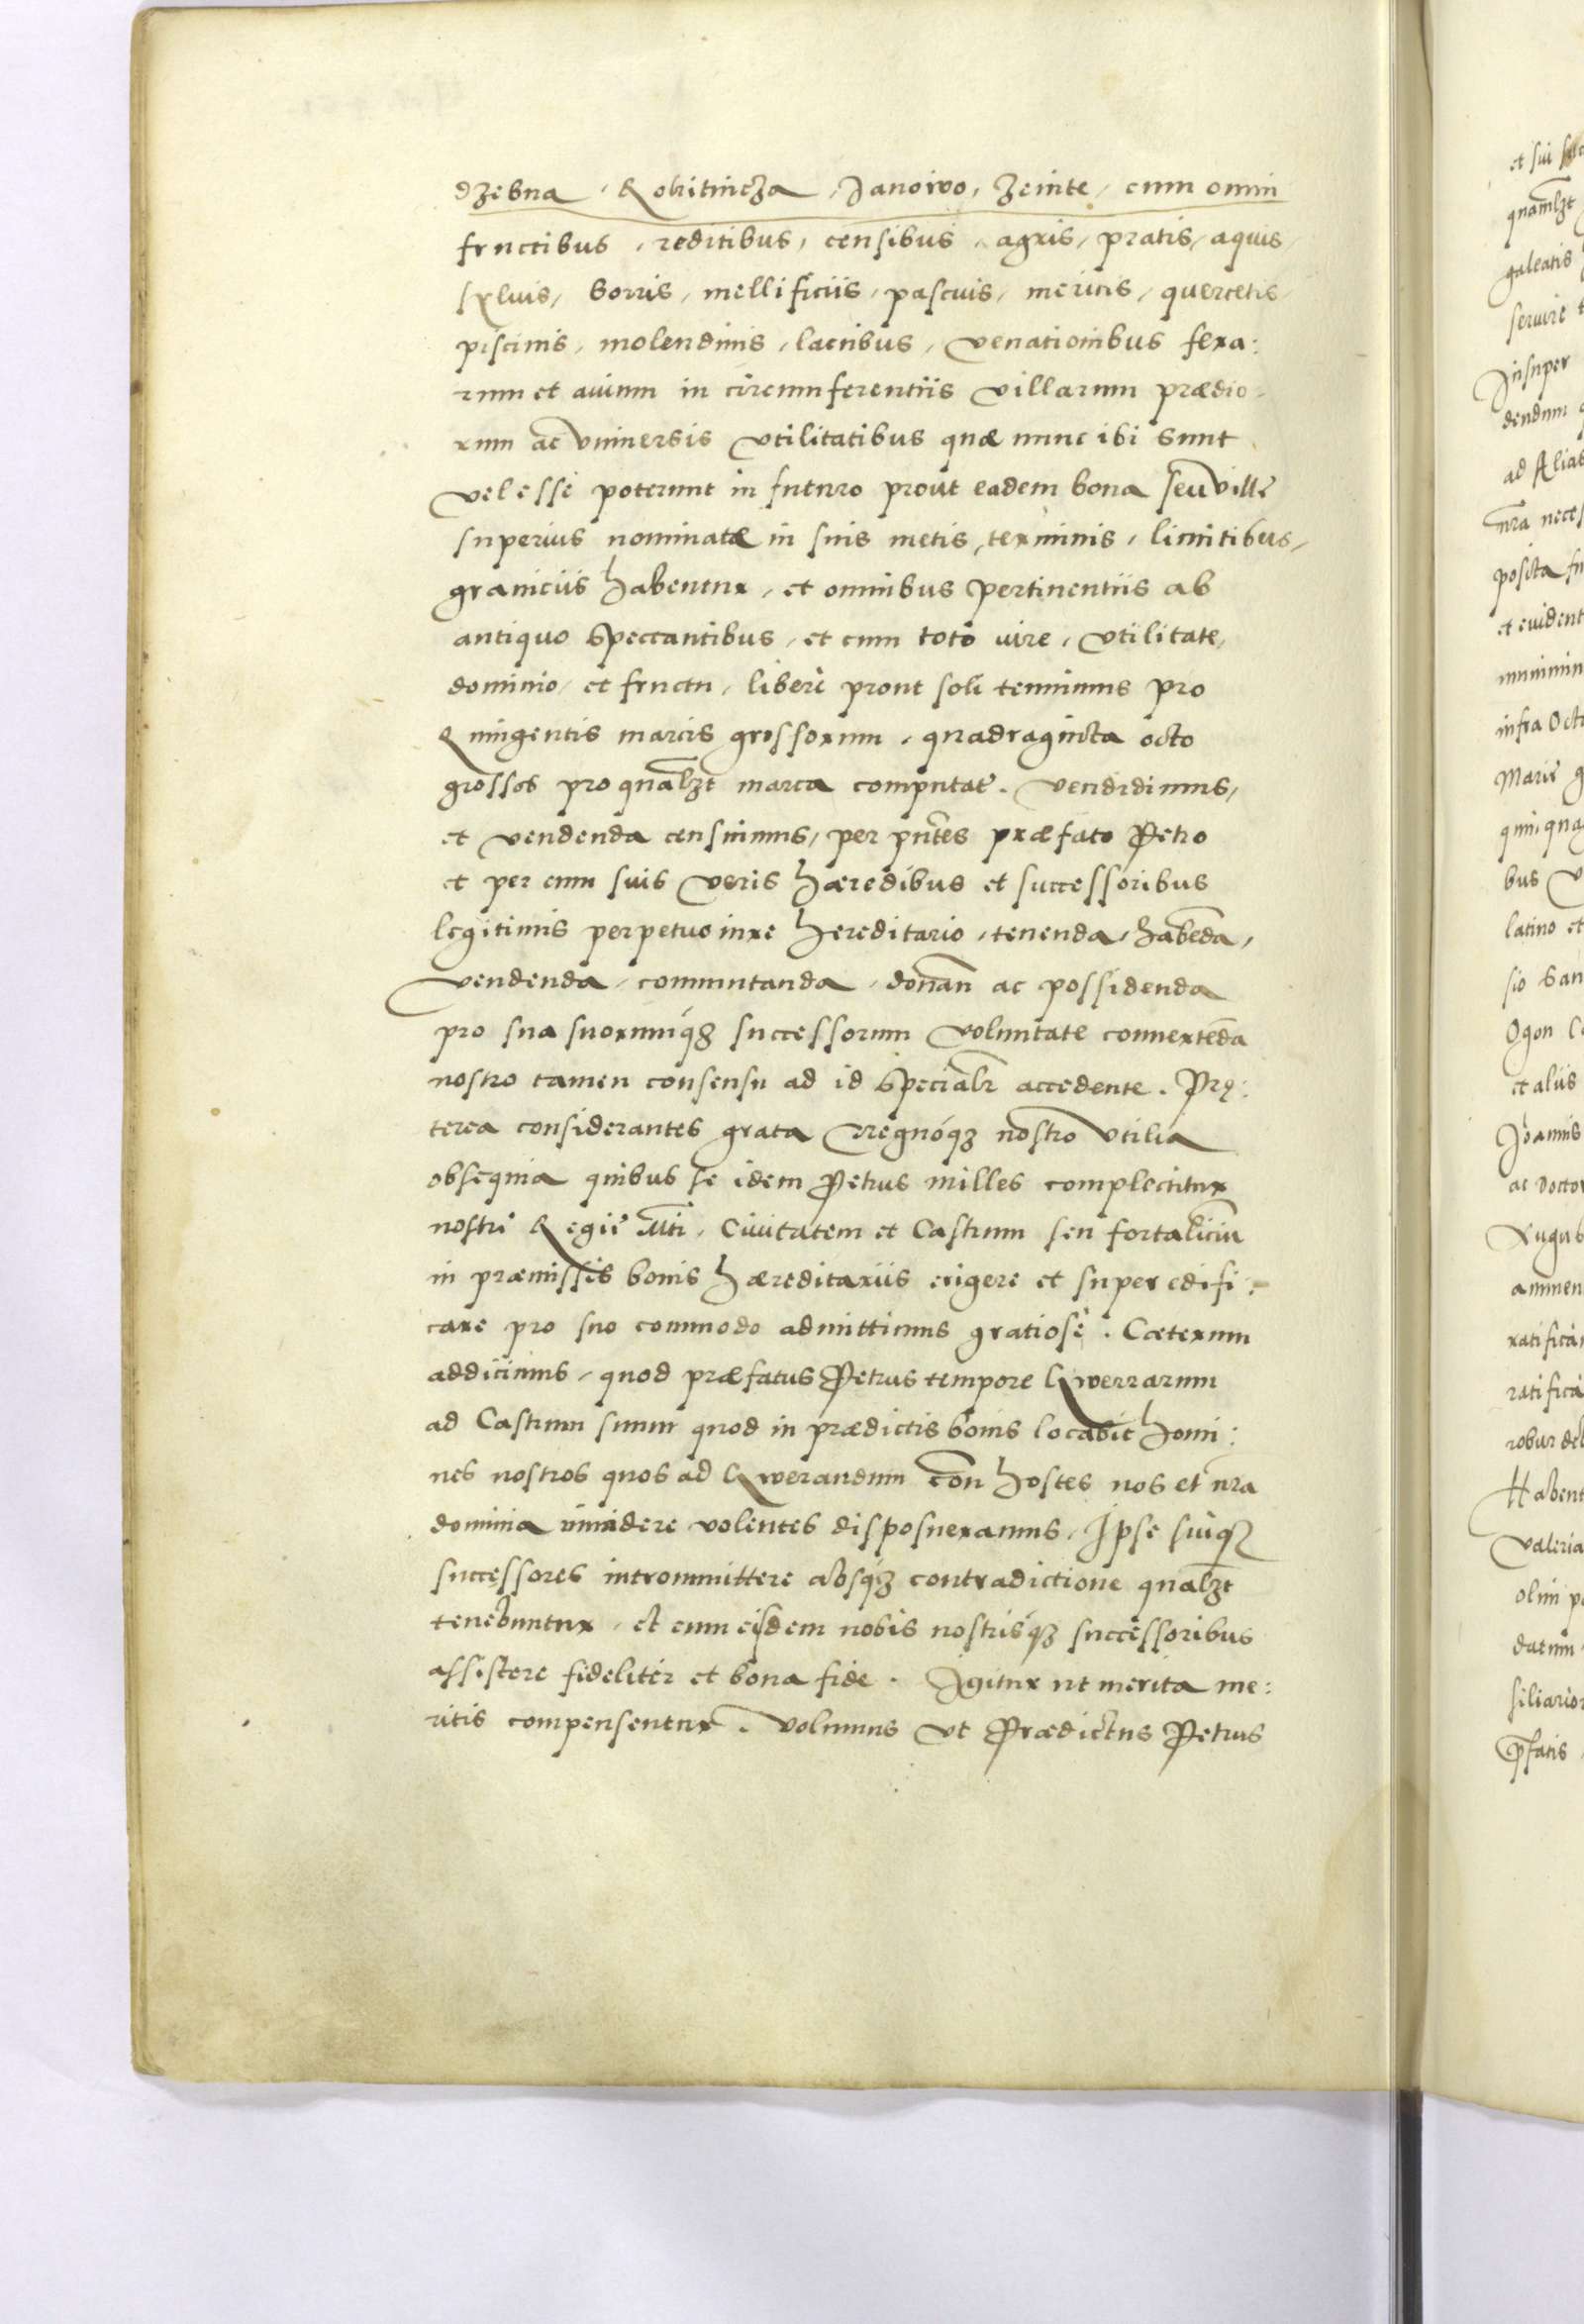 dzebna, Rokitincza, Janowo, Zeinte, cum omni
fructibus, reditibus, censibus, agris, pratis, aquis,
sylvis, borris, mellificiis, pascuis, mericis, quercetis,
piscinis, molendinis, lacubus, venationibus fera:
rum et avium in circumferentiis villarum prædio-
rum ac vniuersis vtilitatibus quæ nunc ibi sunt
vel esse poterunt in futuro prout eadem bona seu ville
superius nominatæ in suis metis, terminis, limitibus,
graniciis habentur, et omnibus pertinentiis ab
antiquo spectantibus, et cum toto iure, vtilitate,
dominio, et fructu, liberè prout soli tenuimus pro
Quingentis marcis grossorum, quadraginta octo
grossos pro qualzt marca computat. vendidimus,
et vendenda censuimus, per pntes præfato Petro
et per eum suis veris hæredibus et successoribus
legitimis perpetuo iure hereditario, tenenda, habeda,
vendenda, commutanda, donan ac possidenda
pro sua suorumq3 successorum voluntate conuerteda
nostro tamen consensu ad id specialr accedente. Prę:
terea considerantes grata Regnóq3 nostro vtilia
obsequia quibus se idem Petrus milles complectitur
nostre Regie Mti, Ciuitatem et Castrum seu fortaliciu
in præmissis bonis hæreditariis erigere et superedifi:
care pro suo commodo admittimus gratiosè. Cæterum
addicimus, quod præfatus Petrus tempore Gwerrarum
ad Castrum suum quod in prædictis bonis locabit homi:
nes nostros quos ad Gwerandum con hostes nos et nra
dominia inuadere volentes disposuerimus, Ipse suiq3
successores intrommittere absq3 contradictione qualzt
tenebuntur, et cum eisdem nobis nostrisq3 successoribus
assistere fideliter et bona fide. Igitur ut merita me:
ritis compensentur. volumus vt Prædictus Petrus
et sui
galeatis
seruire
Insuper
dendum
ad Alias
nra
posita
et
infra
Marie
bus
latino et
sio San
Ogon
et aliis
Joannis
ac
robur
Habent
olim
datum